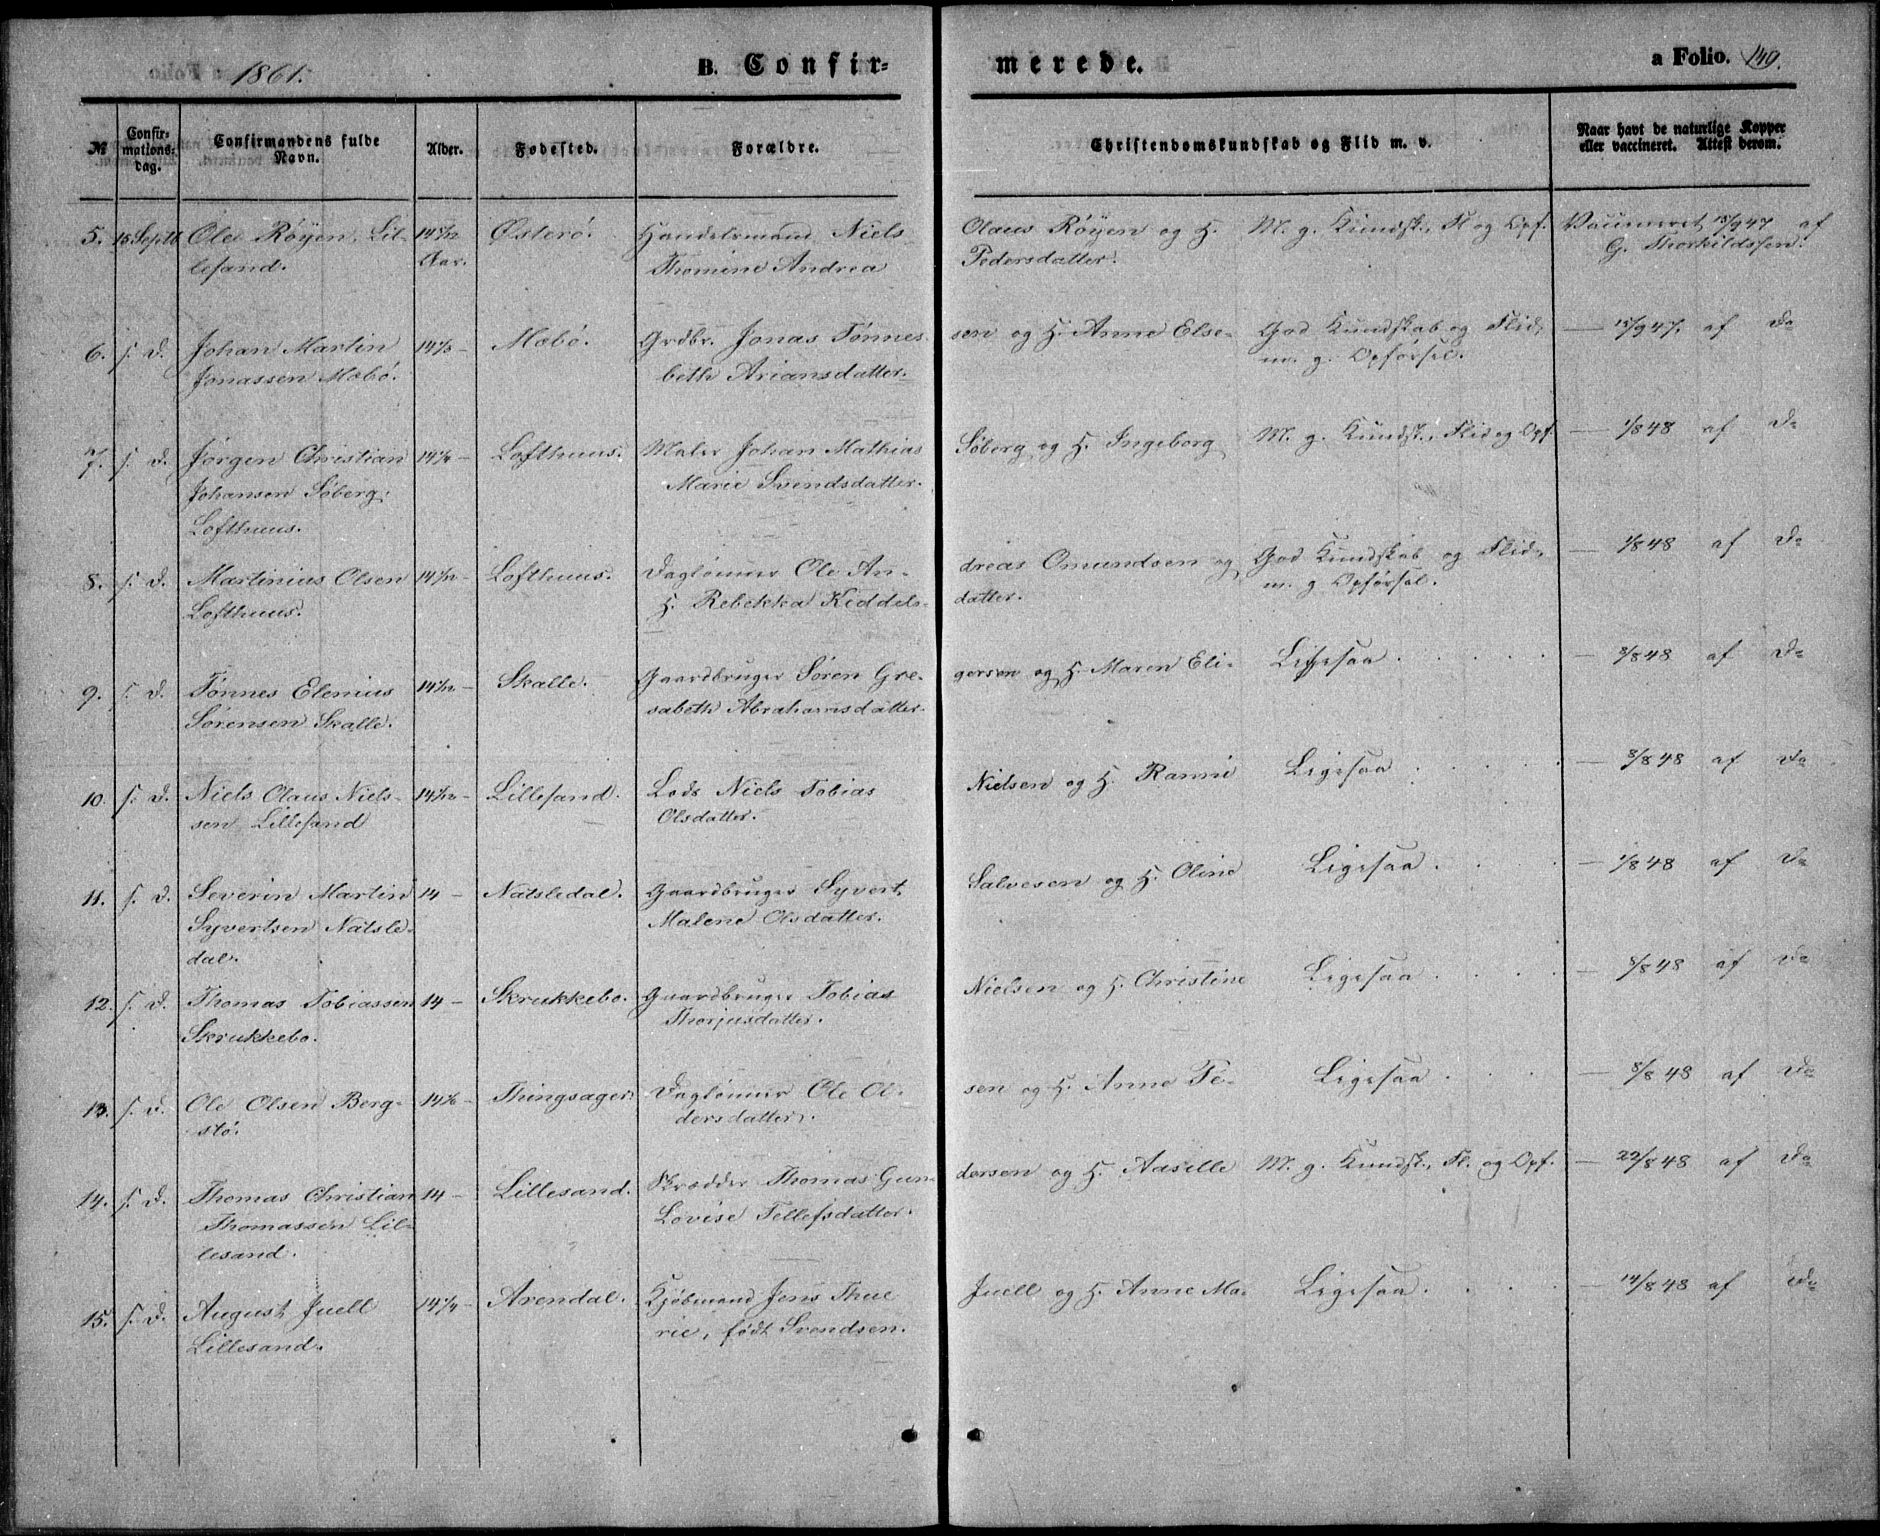 1861.
B. Confir-
merede.
a Folio. 149.
№
Confir-
mations-
dag.
Confirmandens fulde
Navn.
Alder.
Fødested.
Forældre.
Christendomskundskab og Flid m. v.
Naar havt de naturlige Kopper
eller vaccineret. Attest derom.
5. 15 Septb. Ole Røyen, Lil- Østerø. Handelsmand Niels Olaus Røyen og H. M. g. Kundsk., Fl og Opf. Vaccineret 15/9 47 af
lesand. Aar. Thomine Andrea Pedersdatter. G. Thorkildssen.
6. s. D. Johan Martin Mæbø. Grdbr. Jonas Tønnes- sen og H. Anne Else- God Kundskab og Flid, — 15/9 47. af Do
Jonassen Mæbø. beth Ariansdatter. m. g. Opførsel.
7. s. D. Jørgen Christian Lofthuus. Maler Johan Mathias Søberg og H. Ingeborg M. g. Kundsk., Flid og Opf. — 1/8 48 af Do
Johansen Søberg, Marie Svendsdatter.
Lofthuus.
8. s. D. Martinius Olsen Lofthuus. Daglønner Ole An- dreas Omundsen og God Kundskab og Flid, — 1/8 48 af Do
Lofthuus. H. Rebekka Keddels- datter. m. g Opførsel.
9. s. D. Tønnes Elenius Skalle. Gaardbruger Søren Gre- gersen og H. Maren Eli- Ligesaa . — 8/8 48 af Do
Sørensen Skalle. sabeth Abrahamsdatter.
10. s. D. Niels Olaus Niels- Lillesand. Lods Niels Tobias Nielsen og H. Ranni Ligesaa . — 8/8 48 af Do
sen Lillesand Olsdatter.
11. s. D. Severin Martin 14 — Natsledal. Gaardbruger Syvert Salvesen og H. Oline Ligesaa . — 1/8 48 af Do
Syvertsen Natsle- Malene Olsdatter.
dal.
12. s. D. Thomas Tobiassen 14 — Skrukkebo. Gaardbruger Tobias Nielsen og H. Christine Ligesaa . — 8/8 48 af Do
Skrukkebo. Thorjusdatter.
13. s. D. Ole Olsen Berg- Thingsager. Daglønner Ole Ol- sen og H. Anne Pe- Ligesaa . — 8/8 48 af Do
stø. dersdatter.
14. s. D. Thomas Christian 14 — Lillesand. Skrædder Thomas Gun- dersen og H. Aasille M. g. Kundsk., Fl. og Opf. — 22/8 48 af Do
Thomassen Lil- Lovise Tellefsdatter.
lesand.
15. s. D. August Juell 14 1/4 — Arendal. Kjøbmand Jens Thue Juell og H. Anne Ma- Ligesaa . — 14/8 48 af Do
Lillesand. rie, født Svendsen.